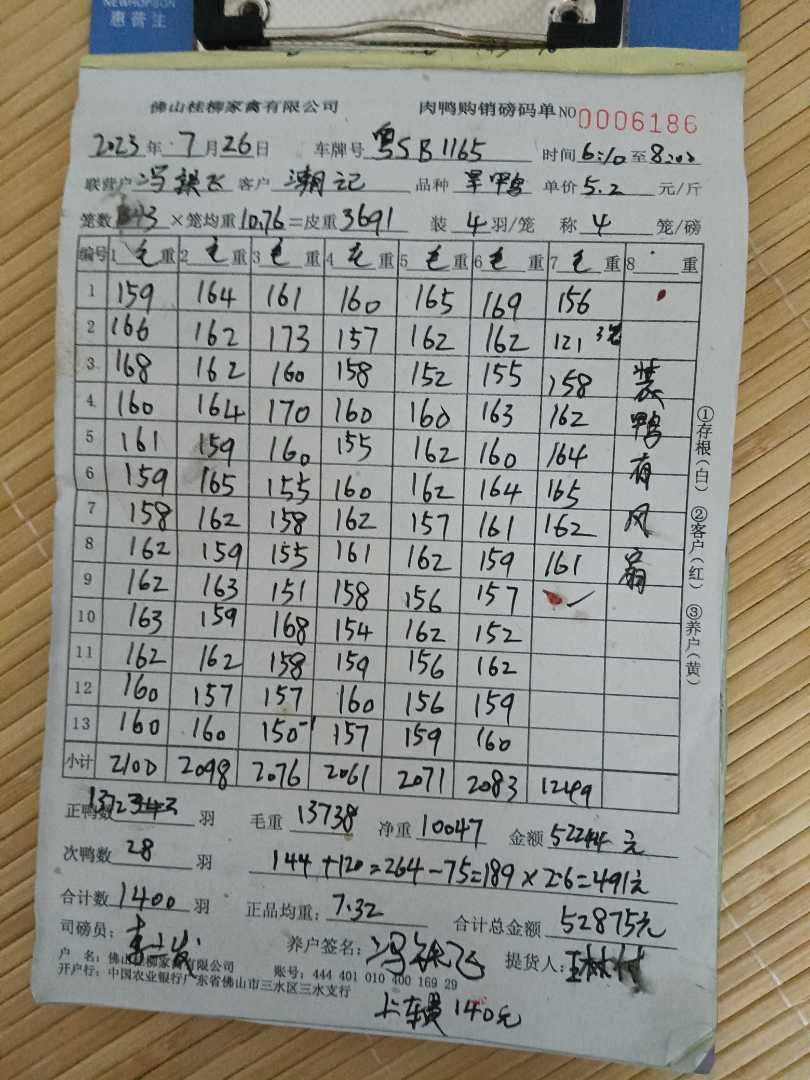 NEWHOPSON
惠普生
佛山桂柳家禽有限公司 肉鸭购销磅码单 NO 0006186
2023年7月26日 车牌号 粤SB1165 时间 6:10 至 8:00
联营户 冯银飞 客户 潮记 品种 旱鸭 单价 5.2 元/斤
笼数 343 ×笼均重 10.76 =皮重 3691 装 4 羽/笼 称 4 笼/磅
编号 1 毛重 2 毛重 3 毛重 4 毛重 5 毛重 6 毛重 7 毛重 8 重
1 159 164 161 160 165 169 156
2 166 162 173 157 162 162 121 3笼
3 168 162 160 158 152 155 158
4 160 164 170 160 160 163 162
5 161 159 160 155 162 160 164
6 159 165 155 160 162 164 165
7 158 162 158 162 157 161 162
8 162 159 155 161 162 159 161
9 162 163 151 158 156 157
10 163 159 168 154 162 152
11 162 162 158 159 156 162
12 160 157 157 160 156 159
13 160 160 150-1 157 159 160
小计 2100 2098 2076 2061 2071 2083 1249
装鸭有风扇
①存根(白) ②客户(红) ③养户(黄)
正鸭数 1372 羽 毛重 13738 净重 10047 金额 52244元
次鸭数 28 羽 144+120=264-75=189×2.6=491元
合计数 1400 羽 正品均重: 7.32 合计总金额 52875元
司磅员: 养户签名: 冯银飞 提货人:
户 名: 佛山桂柳家禽有限公司 账号: 444 401 010 400 169 29
开户行: 中国农业银行广东省佛山市三水区三水支行
上车费 140元